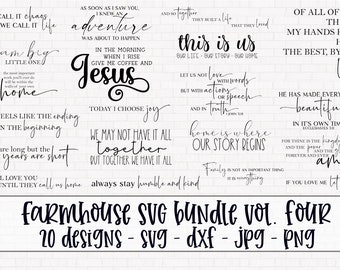 CALL IT
CHAOS
AS SOON AS I SAW YOU
I KNEW AN
adventure
WAS ABOUT TO HAPPEN
And so together
THEY BUILT A LIFE
THEY LOVED
OF ALL OF
MY HANDS
THE BEST, BY
am big
LITTLE ONE
IN THE MORNING
WHEN I RISE
GIVE ME COFFEE AND
Jesus
this is us
OUR LIFE · OUR STORY · OUR HOME
the most important
work you will do
within the
walls of your
home
LET US NOT
love with words
OR speech
BUT WITH actions
AND IN truth
HE HAS MADE EVERY
beautiful
IN IT'S OWN TIME
ECCLESIASTES 3:11
FEELS LIKE THE ending
THE beginning
TODAY I CHOOSE joy
WE MAY NOT HAVE IT ALL
together
BUT TOGETHER WE HAVE IT ALL
home is where
OUR STORY BEGINS
For thine is the kingdom
and the power
AND THE
are long but the
years are short
Family IS NOT AN IMPORTANT THING
it is everything
I LOVE YOU
UNTIL THEY call us home
always stay humble and kind
IF YOU LOVE ME
FARMHOUSE SVG BUNDLE VOL. FOUR
20 DESIGNS - SVG - DXF - JPG - PNG